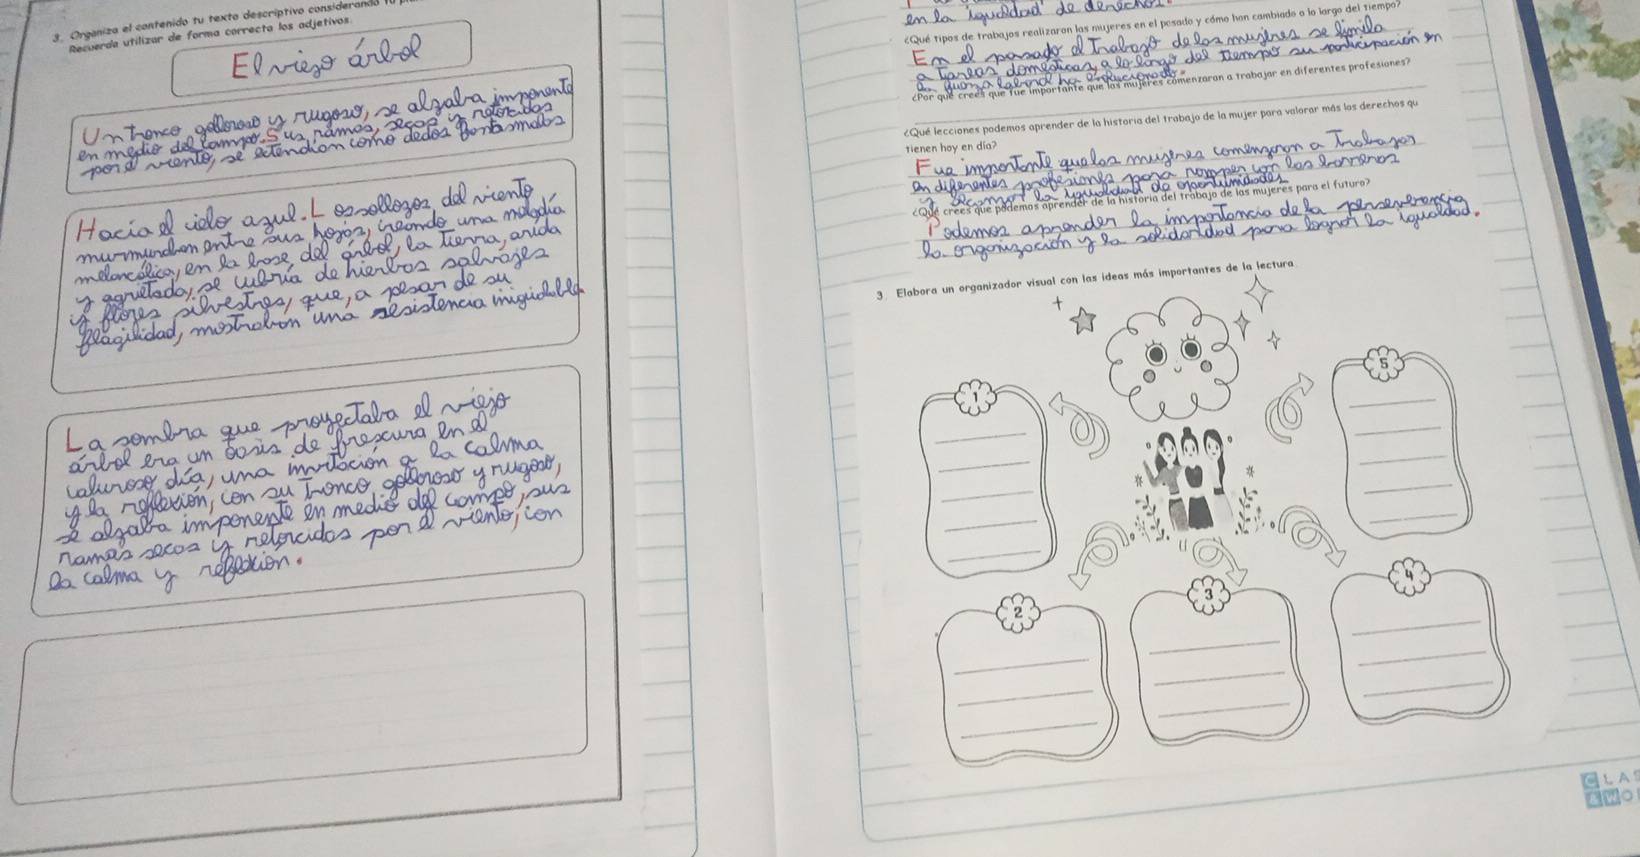 3. Organiza el contenido tu texto descriptivo considerando
Recuerda utilizar de forma correcta los adjetivos.
El viejo árbol
Un tronco golloroso y rugoso, se alzaba imponente
en medio del campo. Sus ramas, secas y retorcidas
por el viento, se extendían como dedos fantasmales
Hacia el cielo azul. L
murmuraban entre sus hojas, creando una melodía
melancólica, en la base del árbol, la tierra, arida
y agrietada, se cubría de hierbas salvajes
y flores silvestres, que, a pesar de su
fragilidad, mostraban una resistencia iniguidable
La sombra que proyectaba el viejo
árbol era un oasis de frescura en el
caluroso día, una invitación a la calma
y la reflexión, con su tronco golloroso y rugoso,
se alzaba imponente en medio del campo, sus
ramas secas y retorcidas por el viento, con
la calma y reflexion.
en la igualdad de derechos.
¿Qué tipos de trabajos realizaron las mujeres en el pasado y cómo han cambiado a lo largo del tiempo?
En el pasado el trabajo de las mujeres se limita
a tareas domésticas, a lo largo del tiempo su participación en
la fuerza laboral ha evolucionado
¿Por qué crees que fue importante que las mujeres comenzaran a trabajar en diferentes profesiones?
¿Qué lecciones podemos aprender de la historia del trabajo de la mujer para valorar más los derechos qu
tienen hoy en día?
Fue importante que las mujeres comenzaron a Trabajar
en diferentes profesiones para romper con las barreras
y la igualdad de oportunidades
¿Qué crees que podemos aprender de la historia del trabajo de las mujeres para el futuro?
Podemos aprender la importancia de la perseverancia
la organización y la solidaridad para lograr la igualdad.
3 Elabora un organizador visual con las ideas más importantes de la lectura
1
5
2
3
4
CLAS
&WO